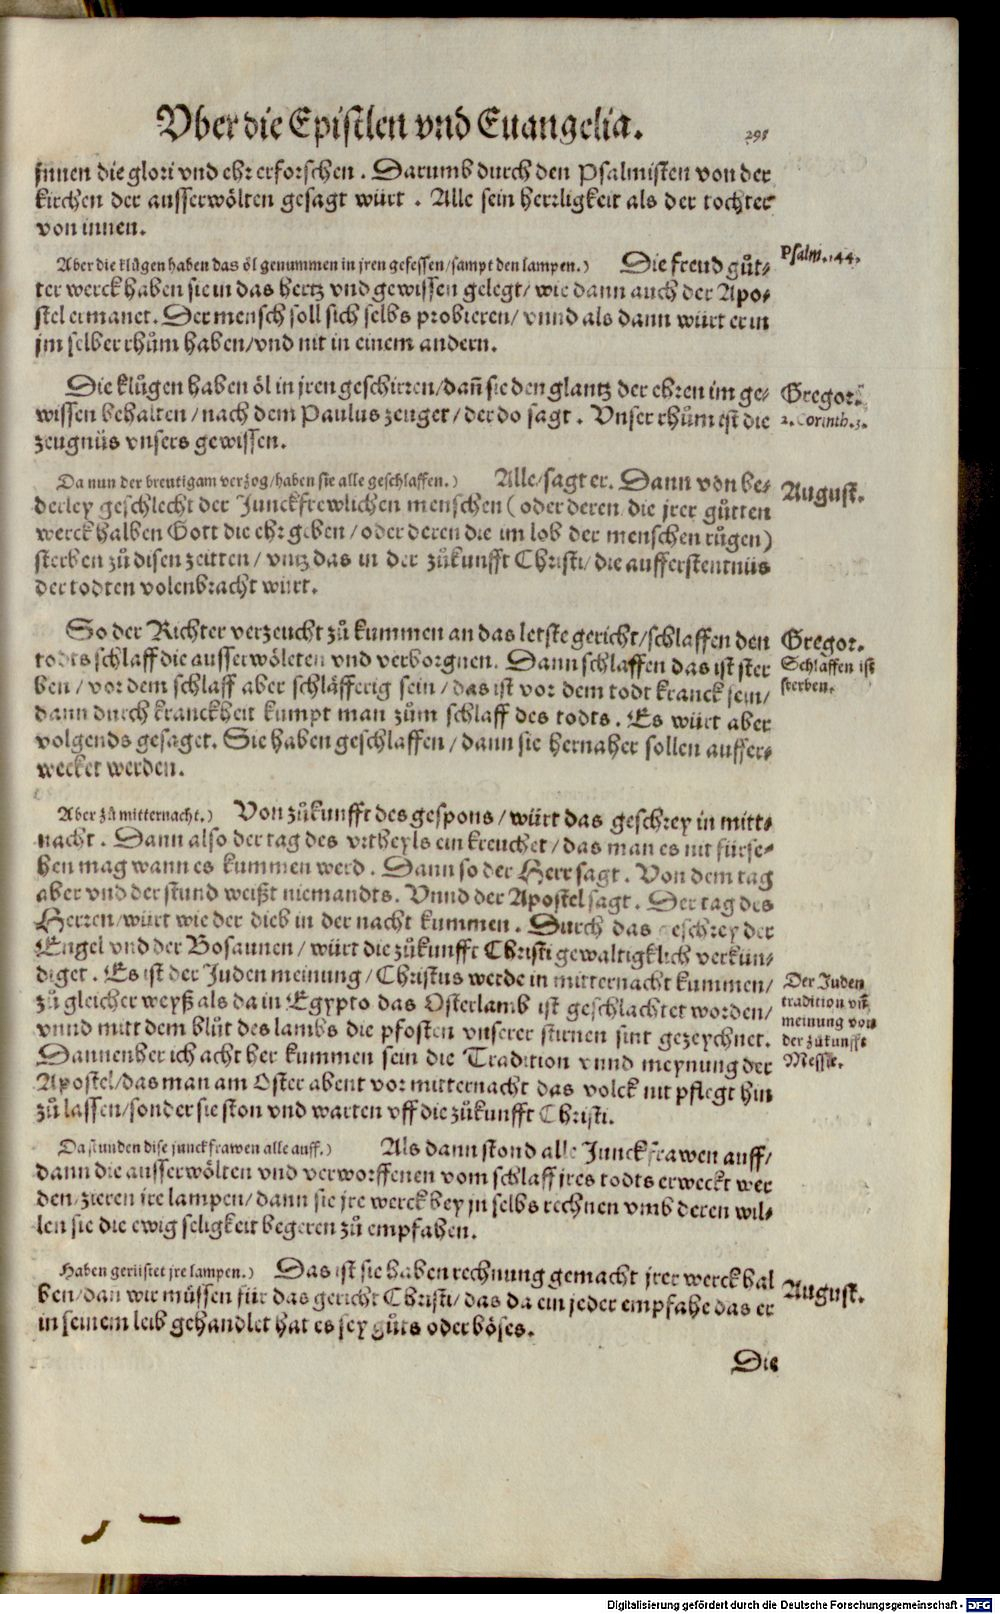 Vber die Epistlen vnd Euangelia. 291
jnnen die glori vnd ehr erforschen. Darumb durch den Psalmisten von der
kirchen der ausserwölten gesagt würt. Alle sein herrligkeit als der tochter
von innen.
Psalm. 44.
Aber die klůgen haben das öl genummen in jren gefessen/sampt den lampen.) Die freud gůt-
ter werck haben sie in das hertz vnd gewissen gelegt/ wie dann auch der Apo-
stel ermanet. Der mensch soll sich selbs probieren/ vnnd als dann würt er in
jm selber rhům haben/vnd nit in einem andern.
Die klůgen haben öl in jren geschirren/dañ sie den glantz der ehren im ge-
wissen behalten/nach dem Paulus zeuget/der do sagt. Vnser rhům ist die
zeugnüs vnsers gewissen.
Gregor.
2. Corinth. 3.
Da nun der breutigam verzog/haben sie alle geschlaffen.) Alle/sagt er. Dann von be-
derley geschlecht der Junckfrewlichen menschen (oder deren die jrer gůtten
werck halben Gott die ehr geben/oder deren die im lob der menschen růgen)
sterben zů disen zeitten/vntz das in der zůkunfft Christi/die aufferstentnüs
der todten volenbracht würt.
August.
So der Richter verzeucht zů kummen an das letste gericht/schlaffen den
todts schlaff die ausserwöleten vnd verborgnen. Dann schlaffen das ist ster
ben/vor dem schlaff aber schläfferig sein/das ist vor dem todt kranck sein/
dann durch kranckheit kumpt man zům schlaff des todts. Es würt aber
volgends gesaget. Sie haben geschlaffen/dann sie hernaher sollen auffer-
wecket werden.
Gregor.
Schlaffen ist
sterben.
Aber zů mitternacht.) Von zůkunfft des gespons/würt das geschrey in mitt-
nacht. Dann also der tag des vrtheyls ein kreuchet/das man es nit fürse-
hen mag wann es kummen werd. Dann so der Herr sagt. Von dem tag
aber vnd der stund weißt niemandts. Vnnd der Apostel sagt. Der tag des
Herren würt wie der dieb in der nacht kummen. Durch das geschrey der
Engel vnd der Bosaunen/würt die zůkunfft Christi gewaltigklich verkün-
diget. Es ist der Juden meinung/Christus werde in mitternacht kummen/
zů gleicher weyß als da in Egypto das Osterlamb ist geschlachtet worden/
vnnd mitt dem blůt des lambs die pfosten vnserer stirnen sint gezeychnet.
Dannenher ich acht her kummen sein die Tradition vnnd meynung der
Apostel/das man am Oster abent vor mitternacht das volck nit pflegt hin
zů lassen/sonder sie ston vnd warten vff die zůkunfft Christi.
Der Juden
tradition vñ
meinung von
der zůkunfft
Messie.
Da stunden dise junckfrawen alle auff.) Als dann stond alle Junckfrawen auff/
dann die ausserwölten vnd verworffenen vom schlaff jres todts erweckt wer
den/zieren jre lampen/dann sie jre werck bey jn selbs rechnen vmb deren wil-
len sie die ewig seligkeit begeren zů empfahen.
Haben gerüstet jre lampen.) Das ist sie haben rechnung gemacht jrer werck hal
ben/dan wir můssen für das gericht Christi/das da ein jeder empfahe das er
in seinem leib gehandlet hat es sey gůts oder böses.
August.
Die
Digitalisierung gefördert durch die Deutsche Forschungsgemeinschaft - DFG